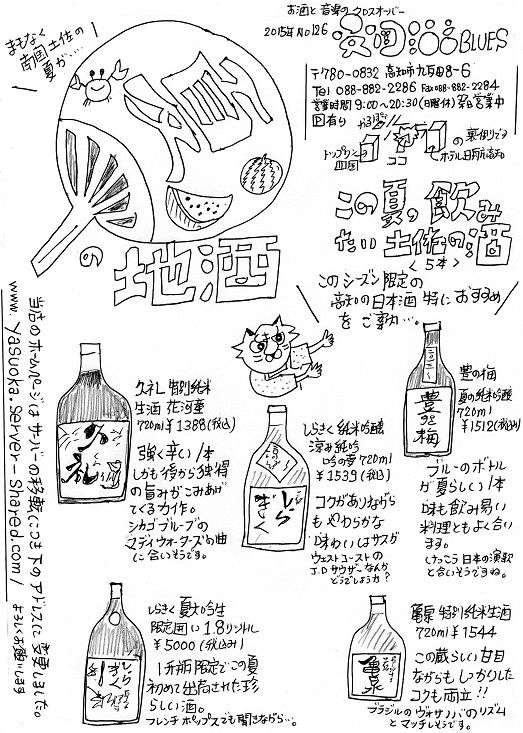 お酒と音楽のクロスオーバー
2015年 No126
安岡酒店BLUES
〒780-0832 高知市九反田8-6
Tel 088-882-2286 Fax 088-882-2284
営業時間 9:00〜20:30(日曜休)翌営業中
P有り
トップワン
四国
ココ
ホテル日航高知
の裏側です
まもなく
南国土佐の
夏が……
夏
の
地酒
この夏、飲み
たい土佐の酒
<5本>
このシーズン限定の
高知の日本酒 特におすすめ
をご案内…。
当店のホームページはサーバーの移転につき下のアドレスに変更しました。
www.yasuoka.server-shared.com/
よろしくお願いします
久礼 特別純米
生酒
720ml ¥1388(税込)
強く辛い1本
しかも後から独得
の旨みがこみあげ
てくるカ作。
シカゴブルースの
マディウォーターズの曲
に合いそうです。
久礼
しらぎく 純米吟醸
720ml
¥1539(税込)
コクがありながら
もやわらかな
味わいはサスガ
ウェストコーストの
J.Dサウザーなんか
どうでしょうか?
しらぎく
豊の梅
夏の純米吟醸
720ml
¥1512(税込)
ブルーのボトル
が夏らしい1本
味も飲み易い
料理ともよく合い
ます。
けっこう日本の演歌
と合いそうですね。
豊の梅
しらぎく 夏
1.8リットル
¥5000(税込み)
1升瓶限定でこの夏
初めて出荷された珍
らしい酒。
フレンチポップスでも聞きながら…。
しらぎく
亀泉 特別純米生酒
720ml ¥1544
この蔵らしい甘目
ながらもしっかりした
コクも両立!!
ブラジルのボサノバのリズム
とマッチしそうです。
亀泉